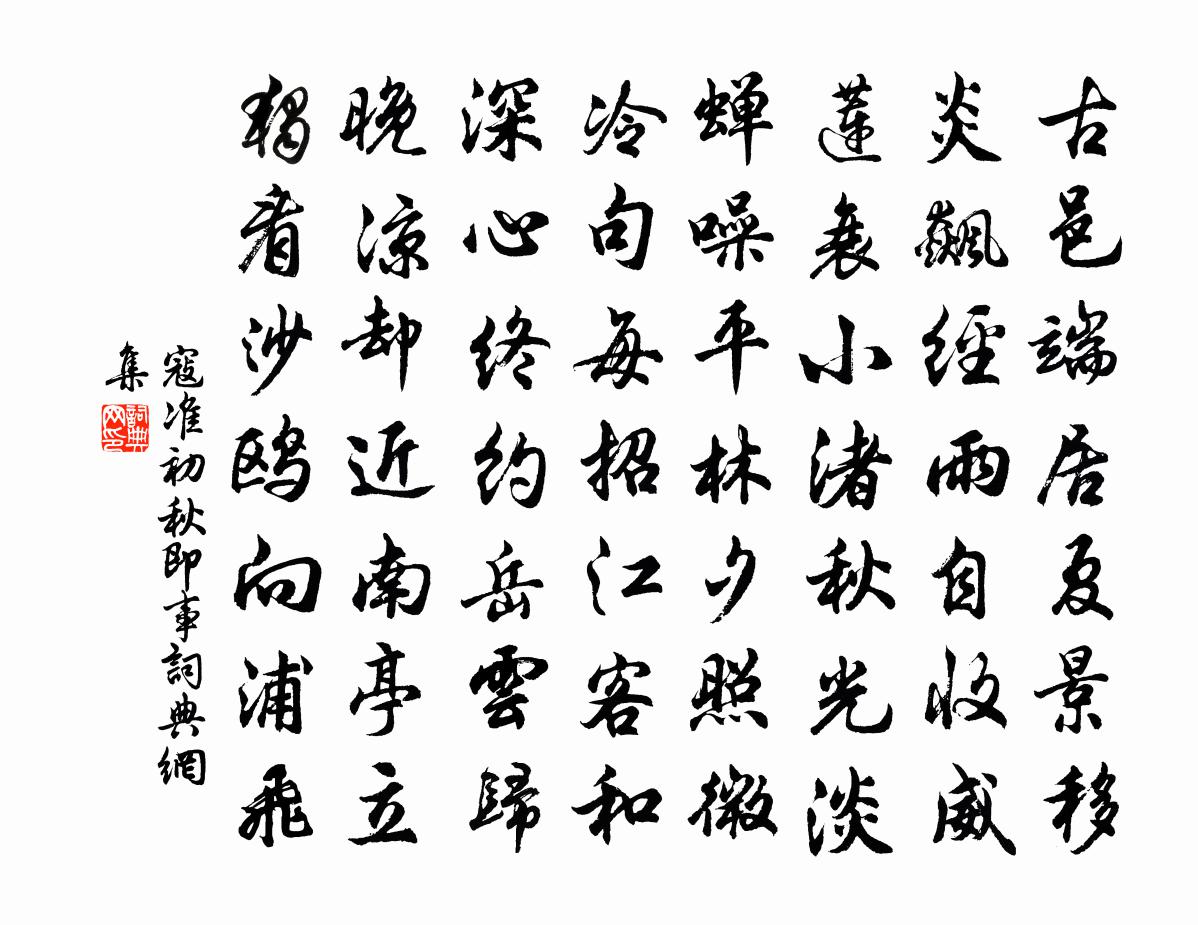 古邑端居夏景移
炎飆經雨自收威
蓮衰小渚秋光淡
蝉噪平林夕照微
冷句每招江客和
深心終約岳雲歸
晚涼却近南亭立
獨看沙鸥向浦飛
寇准初秋即事詞典網
集
詞典
网印